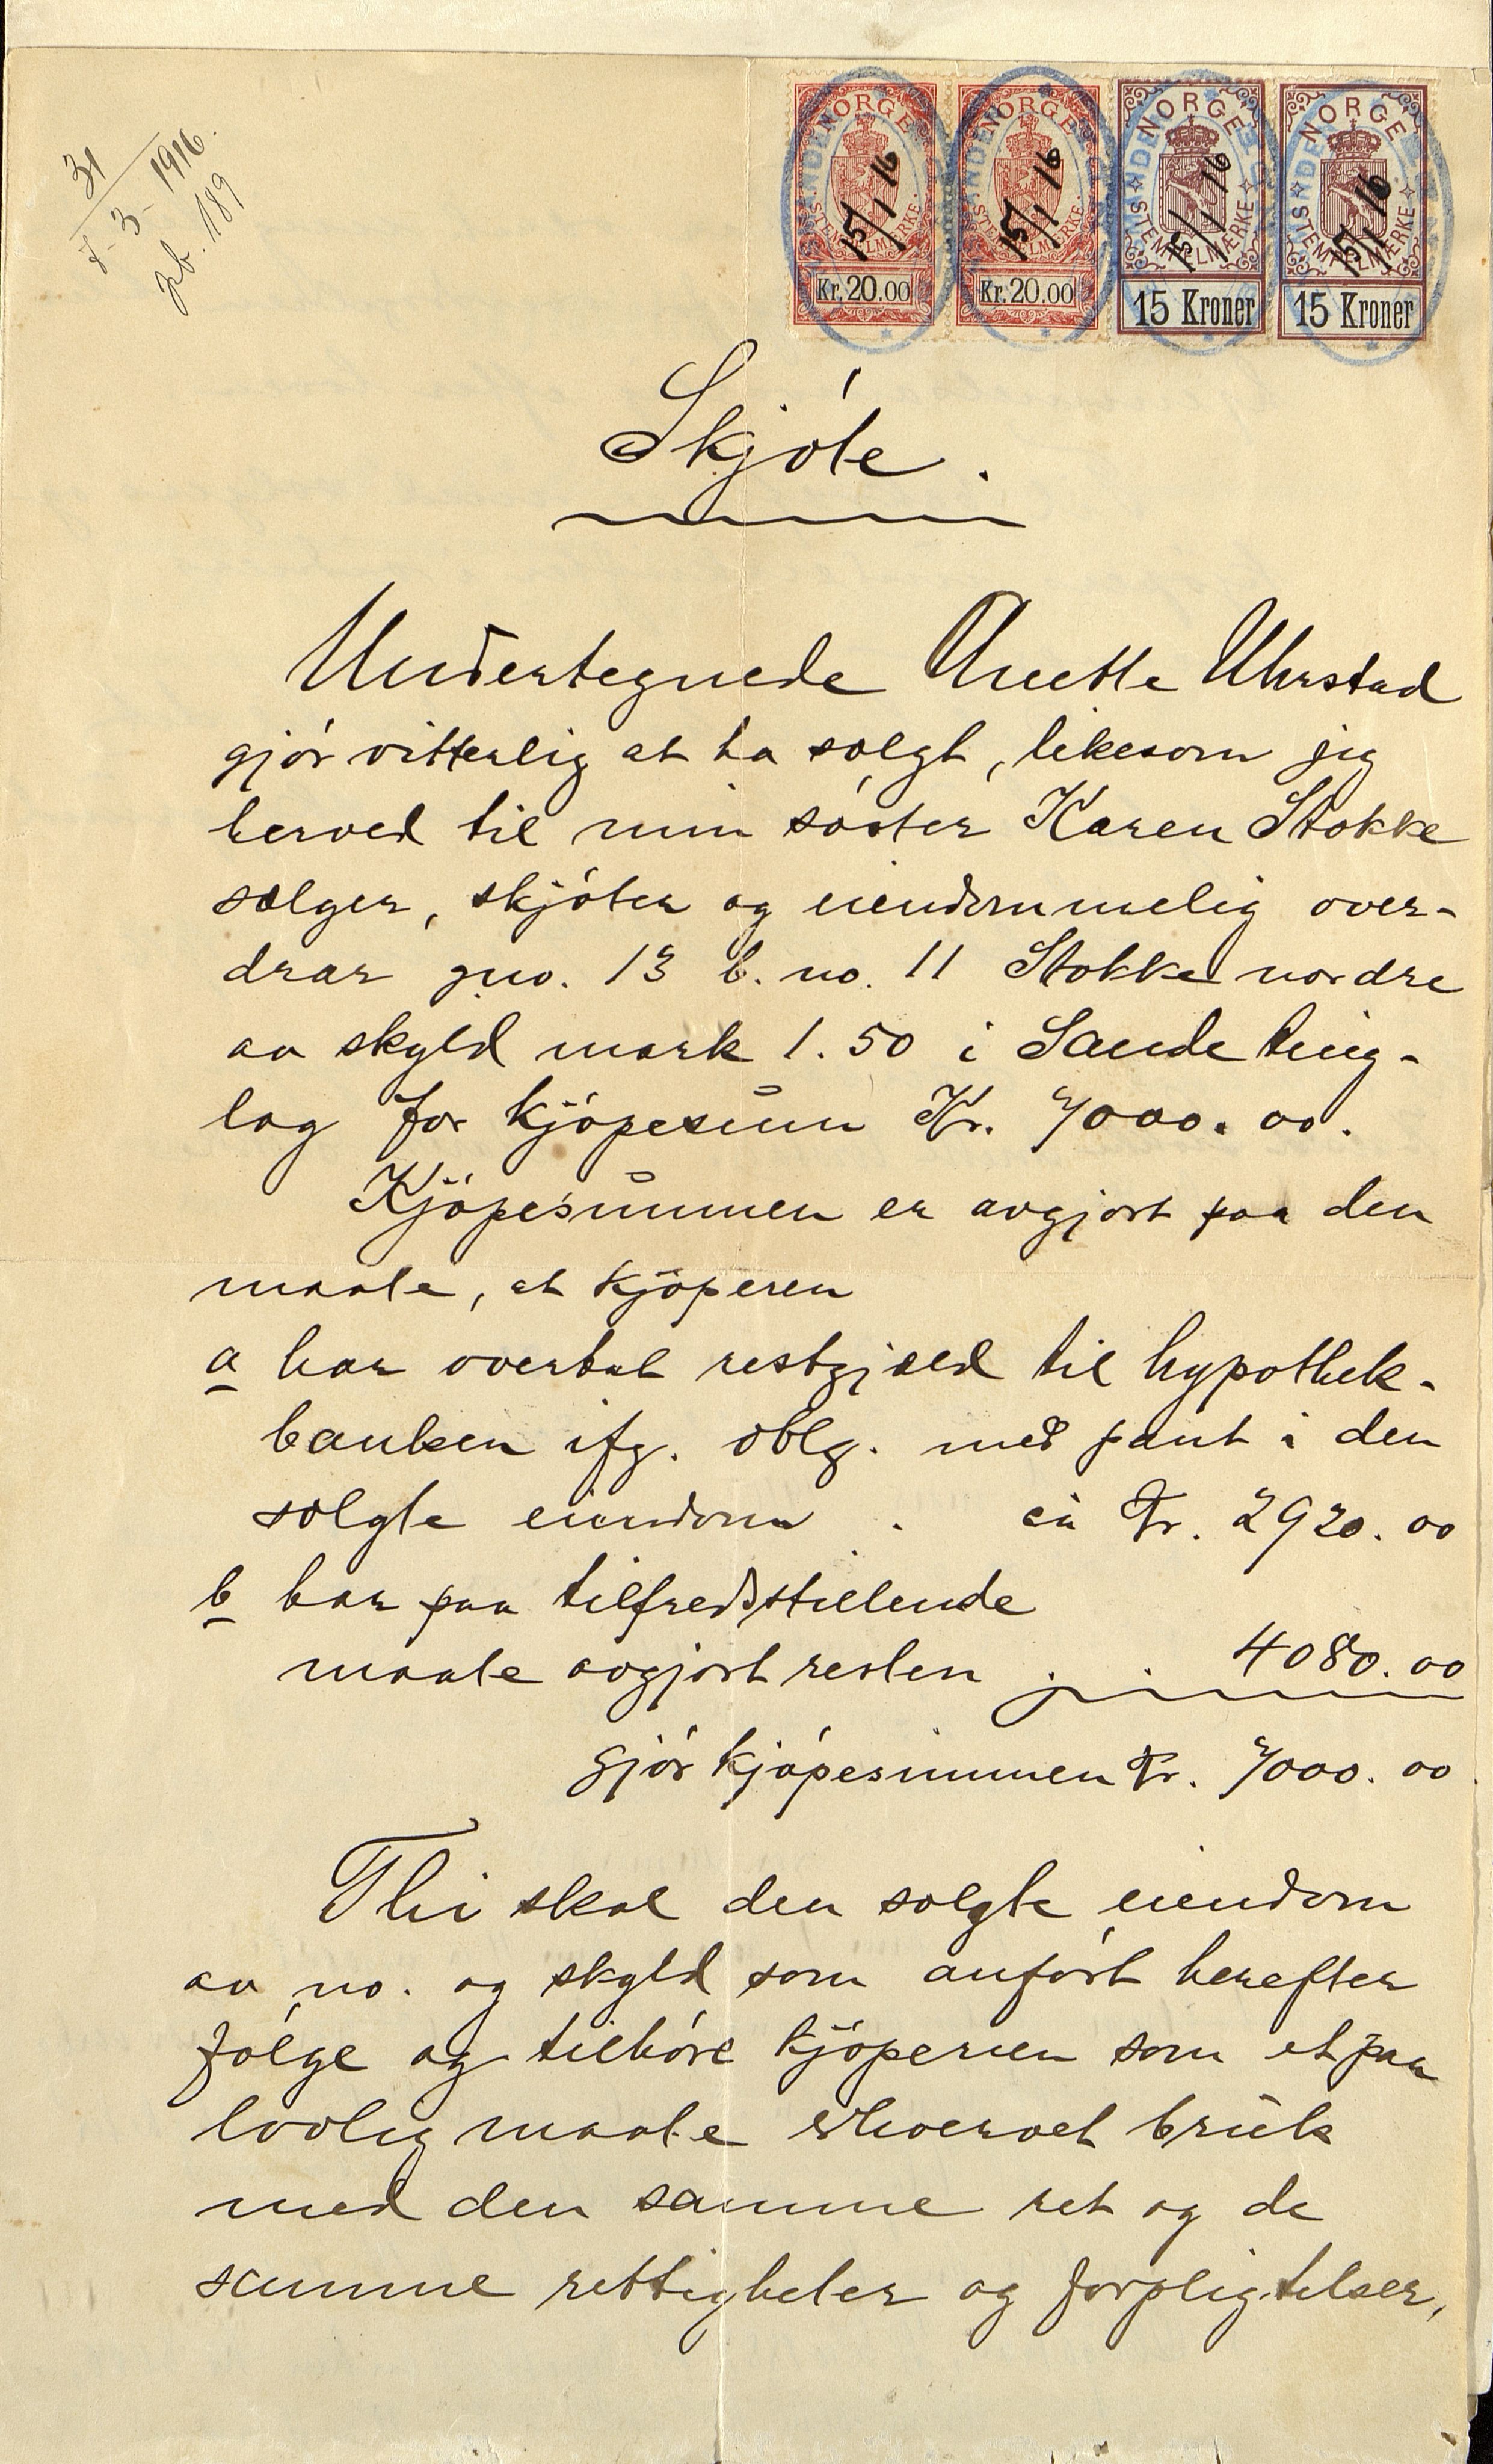 31
7-3-1916.
pb. 189
NORGE NORGE NORGE NORGE
STEMPELMÆRKE. STEMPELMÆRKE. STEMPELMÆRKE STEMPELMÆRKE
15/1 16 15/1 16 15/1 16 15/1 16
Kr. 20.00 Kr. 20.00 15 Kroner 15 Kroner
Skjóte.
Undertegnede Anette Uhrstad
gjór vitterlig at ha solgt, likesom jeg
herved til min sóster Karen Stokke
sælger, skjóter og eiendommelig over-
drar gno. 13 b. no. 11 Stokke nordre
av skyld mark 1.50 i Sande ting-
lag for kjópesum Kr. 7000.00.
Kjópesummen er avgjort paa den
maate, at kjóperen
a har overtat restgjæld til hypothek-
banken ifg. oblg. med pant i den
solgte eiendom . ca Kr. 2920.00
b har paa tilfredsstillende
maate avgjort resten . . 4080.00
gjór kjópesummen Kr. 7000.00
Thi skal den solgte eiendom
av no. og skyld som anfórt herefter
fólge og tilhóre kjóperen som et paa
lovlig maate erhvervet bruk
med den samme ret og de
samme rettigheter og forpligtelser,